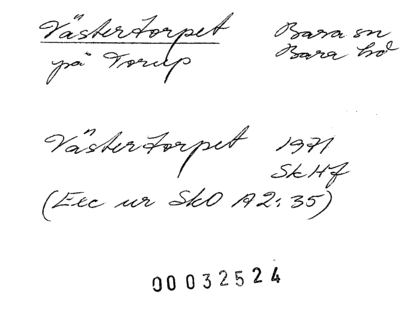 Västertorpet Bara sn
på Torup Bara hd
Västertorpet 1971
SkHf
(Exc ur SkO A2:35)
00032524